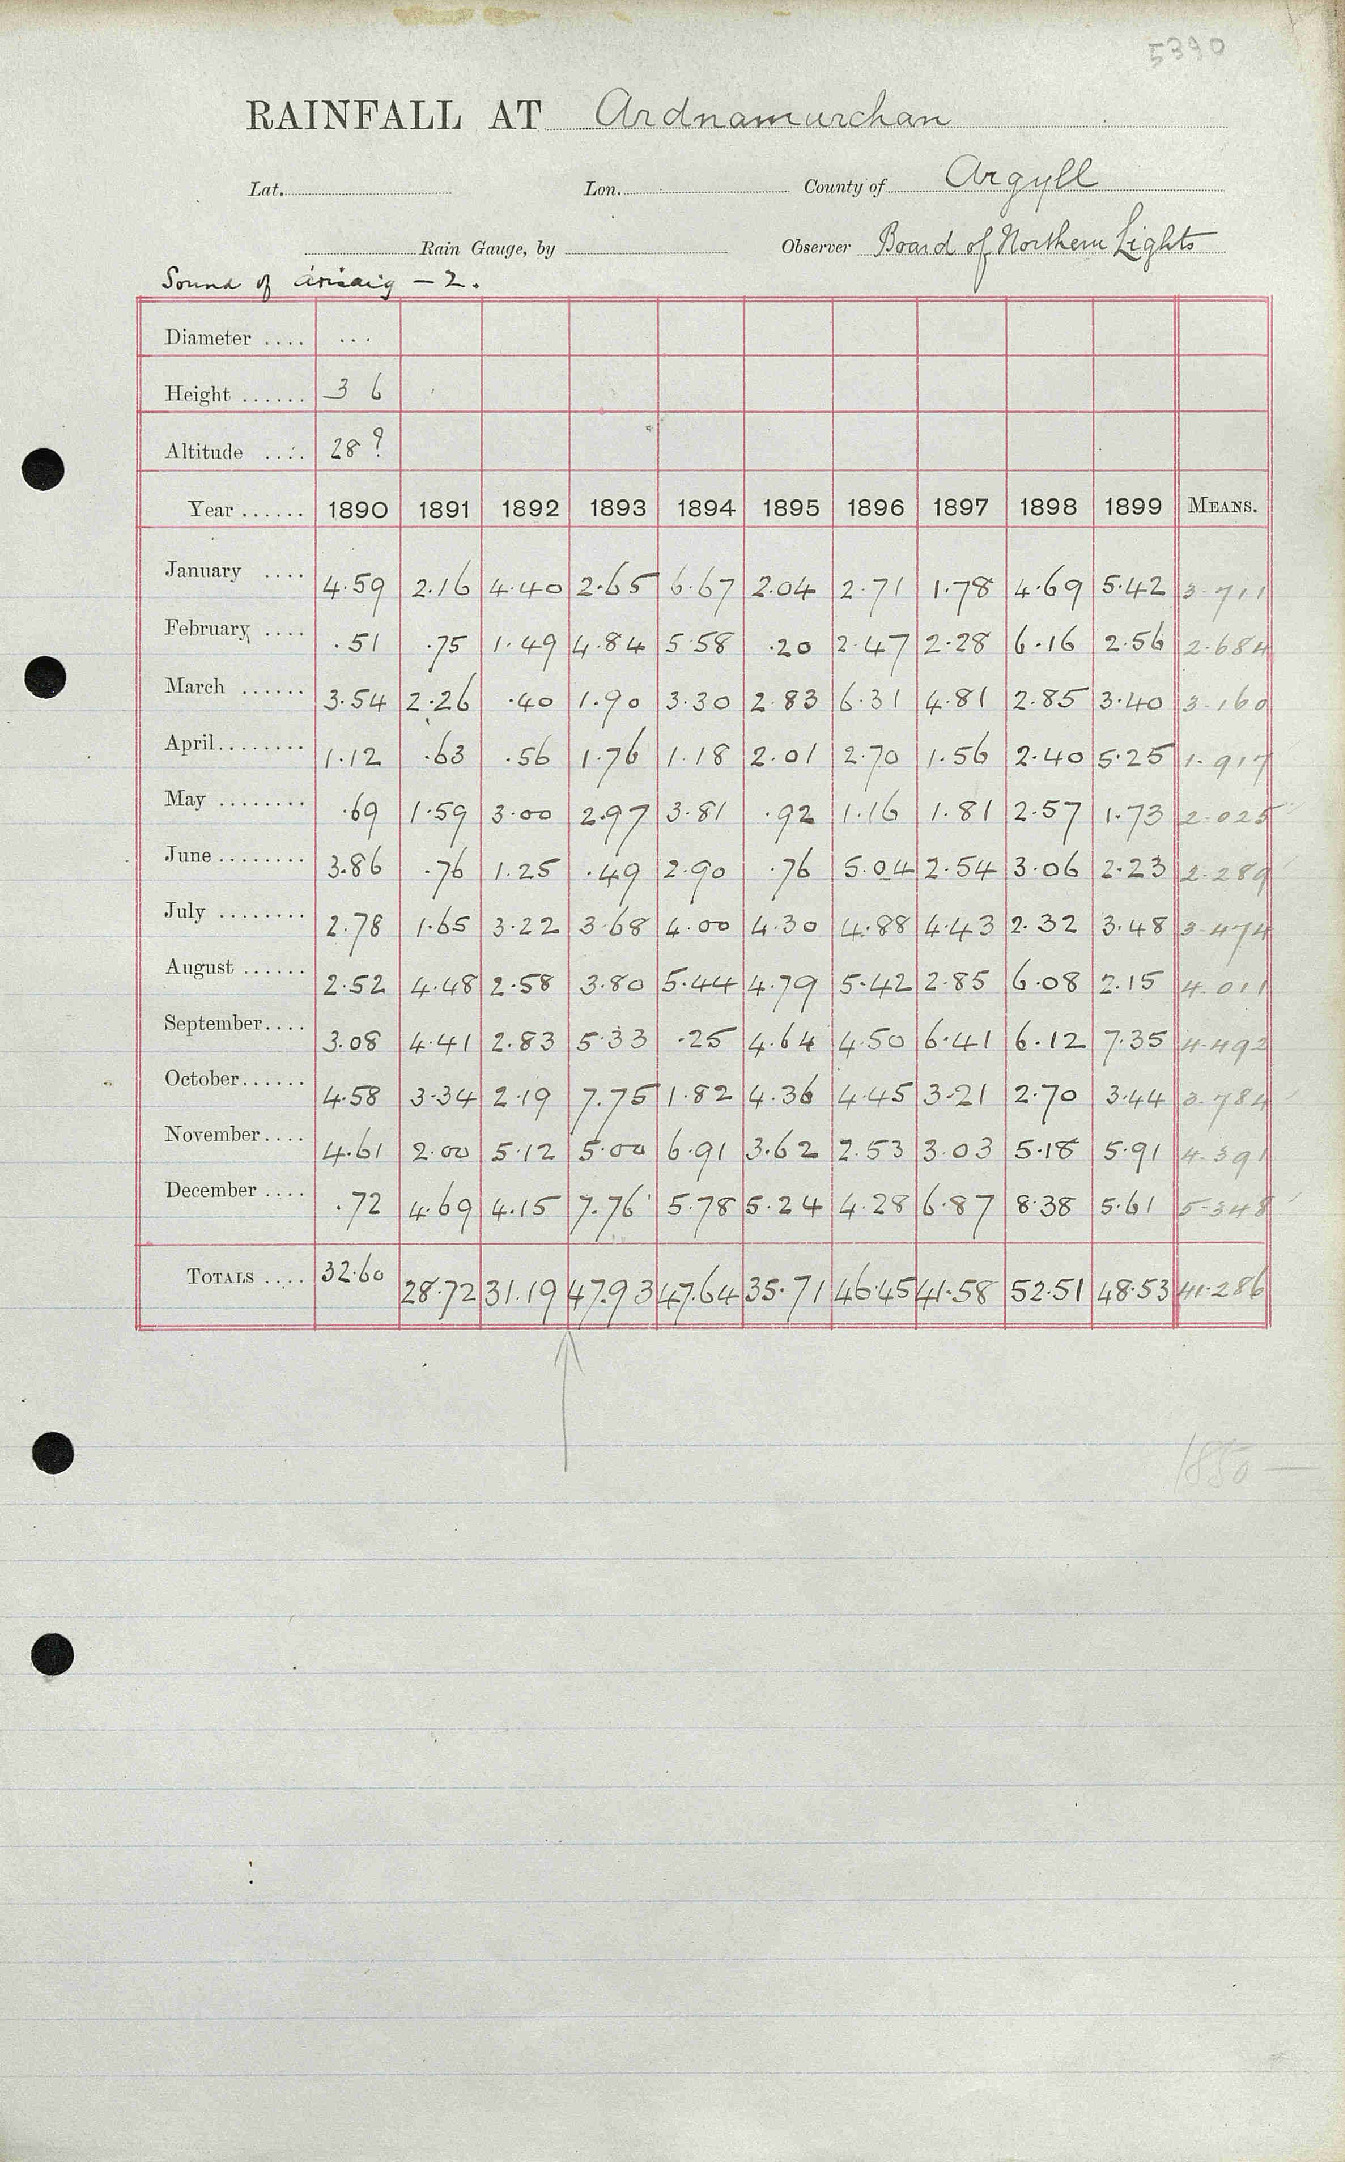 5390
RAINFALL AT Ardnamurchan
Lat. Lon. County of Argyll
Rain Gauge, by Observer Board of Northern Lights
Sound of Arisaig – 2.
Diameter .... ...
Height ...... 3 6
Altitude .... 28 ?
Year ...... 1890 1891 1892 1893 1894 1895 1896 1897 1898 1899 MEANS.
January .... 4.59 2.16 4.40 2.65 6.67 2.04 2.71 1.78 4.69 5.42 3.711
February .... .51 .75 1.49 4.84 5.58 .20 2.47 2.28 6.16 2.56 2.684
March ...... 3.54 2.26 .40 1.90 3.30 2.83 6.31 4.81 2.85 3.40 3.160
April........ 1.12 .63 .56 1.76 1.18 2.01 2.70 1.56 2.40 5.25 1.917
May ........ .69 1.59 3.00 2.97 3.81 .92 1.16 1.81 2.57 1.73 2.025
June ........ 3.86 .76 1.25 .49 2.90 .76 5.04 2.54 3.06 2.23 2.289
July ........ 2.78 1.65 3.22 3.68 4.00 4.30 4.88 4.43 2.32 3.48 3.474
August ...... 2.52 4.48 2.58 3.80 5.44 4.79 5.42 2.85 6.08 2.15 4.011
September.... 3.08 4.41 2.83 5.33 .25 4.64 4.50 6.41 6.12 7.35 4.492
October...... 4.58 3.34 2.19 7.75 1.82 4.36 4.45 3.21 2.70 3.44 3.784
November.... 4.61 2.00 5.12 5.00 6.91 3.62 2.53 3.03 5.18 5.91 4.391
December .... .72 4.69 4.15 7.76 5.78 5.24 4.28 6.87 8.38 5.61 5.348
TOTALS .... 32.60 28.72 31.19 47.93 47.64 35.71 46.45 41.58 52.51 48.53 41.286
1850 —